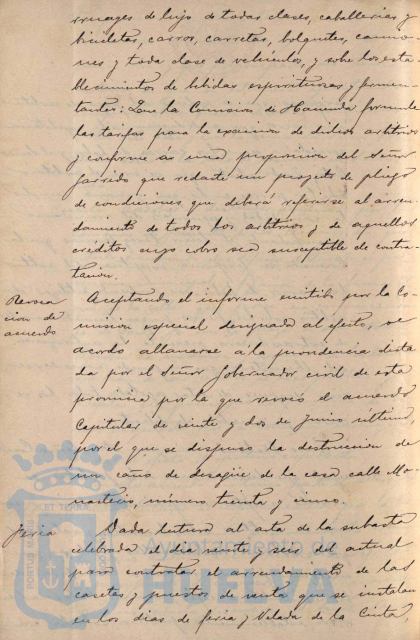 rruages de lujo de todas clases, caballerias y
bicicletas, carros, carretas, bolquetes, camio-
nes y toda clase de vehículos, y sobre los esta
blecimientos de bebidas espirituosas y fermen-
tantes: Que la Comision de Hacienda formule
las tarifas para la exaccion de dichos arbitrios
y conforme á una proposicion del Señor
Garrido que redacte un proyecto de pliego
de condiciones que deberá referirse al arren-
damiento de todos los arbitrios y de aquellos
créditos cuyo cobro sea susceptible de contra-
tacion.
Revoca
cion de
acuerdo
Aceptando el informe emitido por la Co
mision especial designada al efecto, se
acordó allanarse á la providencia dicta
da por el Señor Gobernador civil de esta
provincia por la que revocó el acuerdo
Capitular de veinte y dos de Junio último,
por el que se dispuso la destruccion de
un caño de desagüe de la casa calle Mo
nasterio, número treinta y cinco.
Feria
Dada lectura al acta de la subasta
celebrada el dia veinte y seis del actual
para contratar el arrendamiento de las
casetas y puestos de venta que se instalan
en los dias de feria y Velada de la Cinta,
Ayuntamiento de
HUELVA